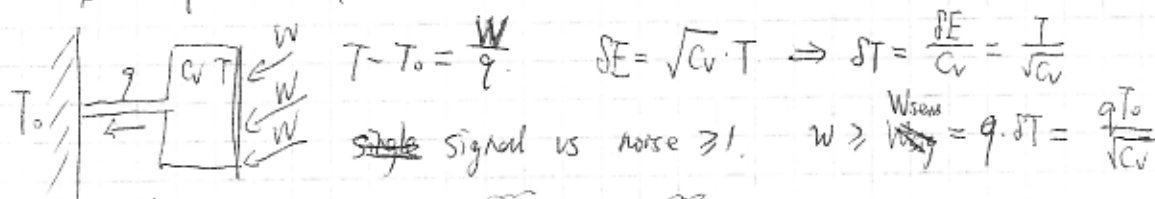 T₀ q Cv T W W W
T - T₀ = W/q. δE = √Cv · T ⇒ δT = δE/Cv = T/√Cv
signal vs noise ≥ 1. W ≥ Wsens = q · δT = qT₀/√Cv